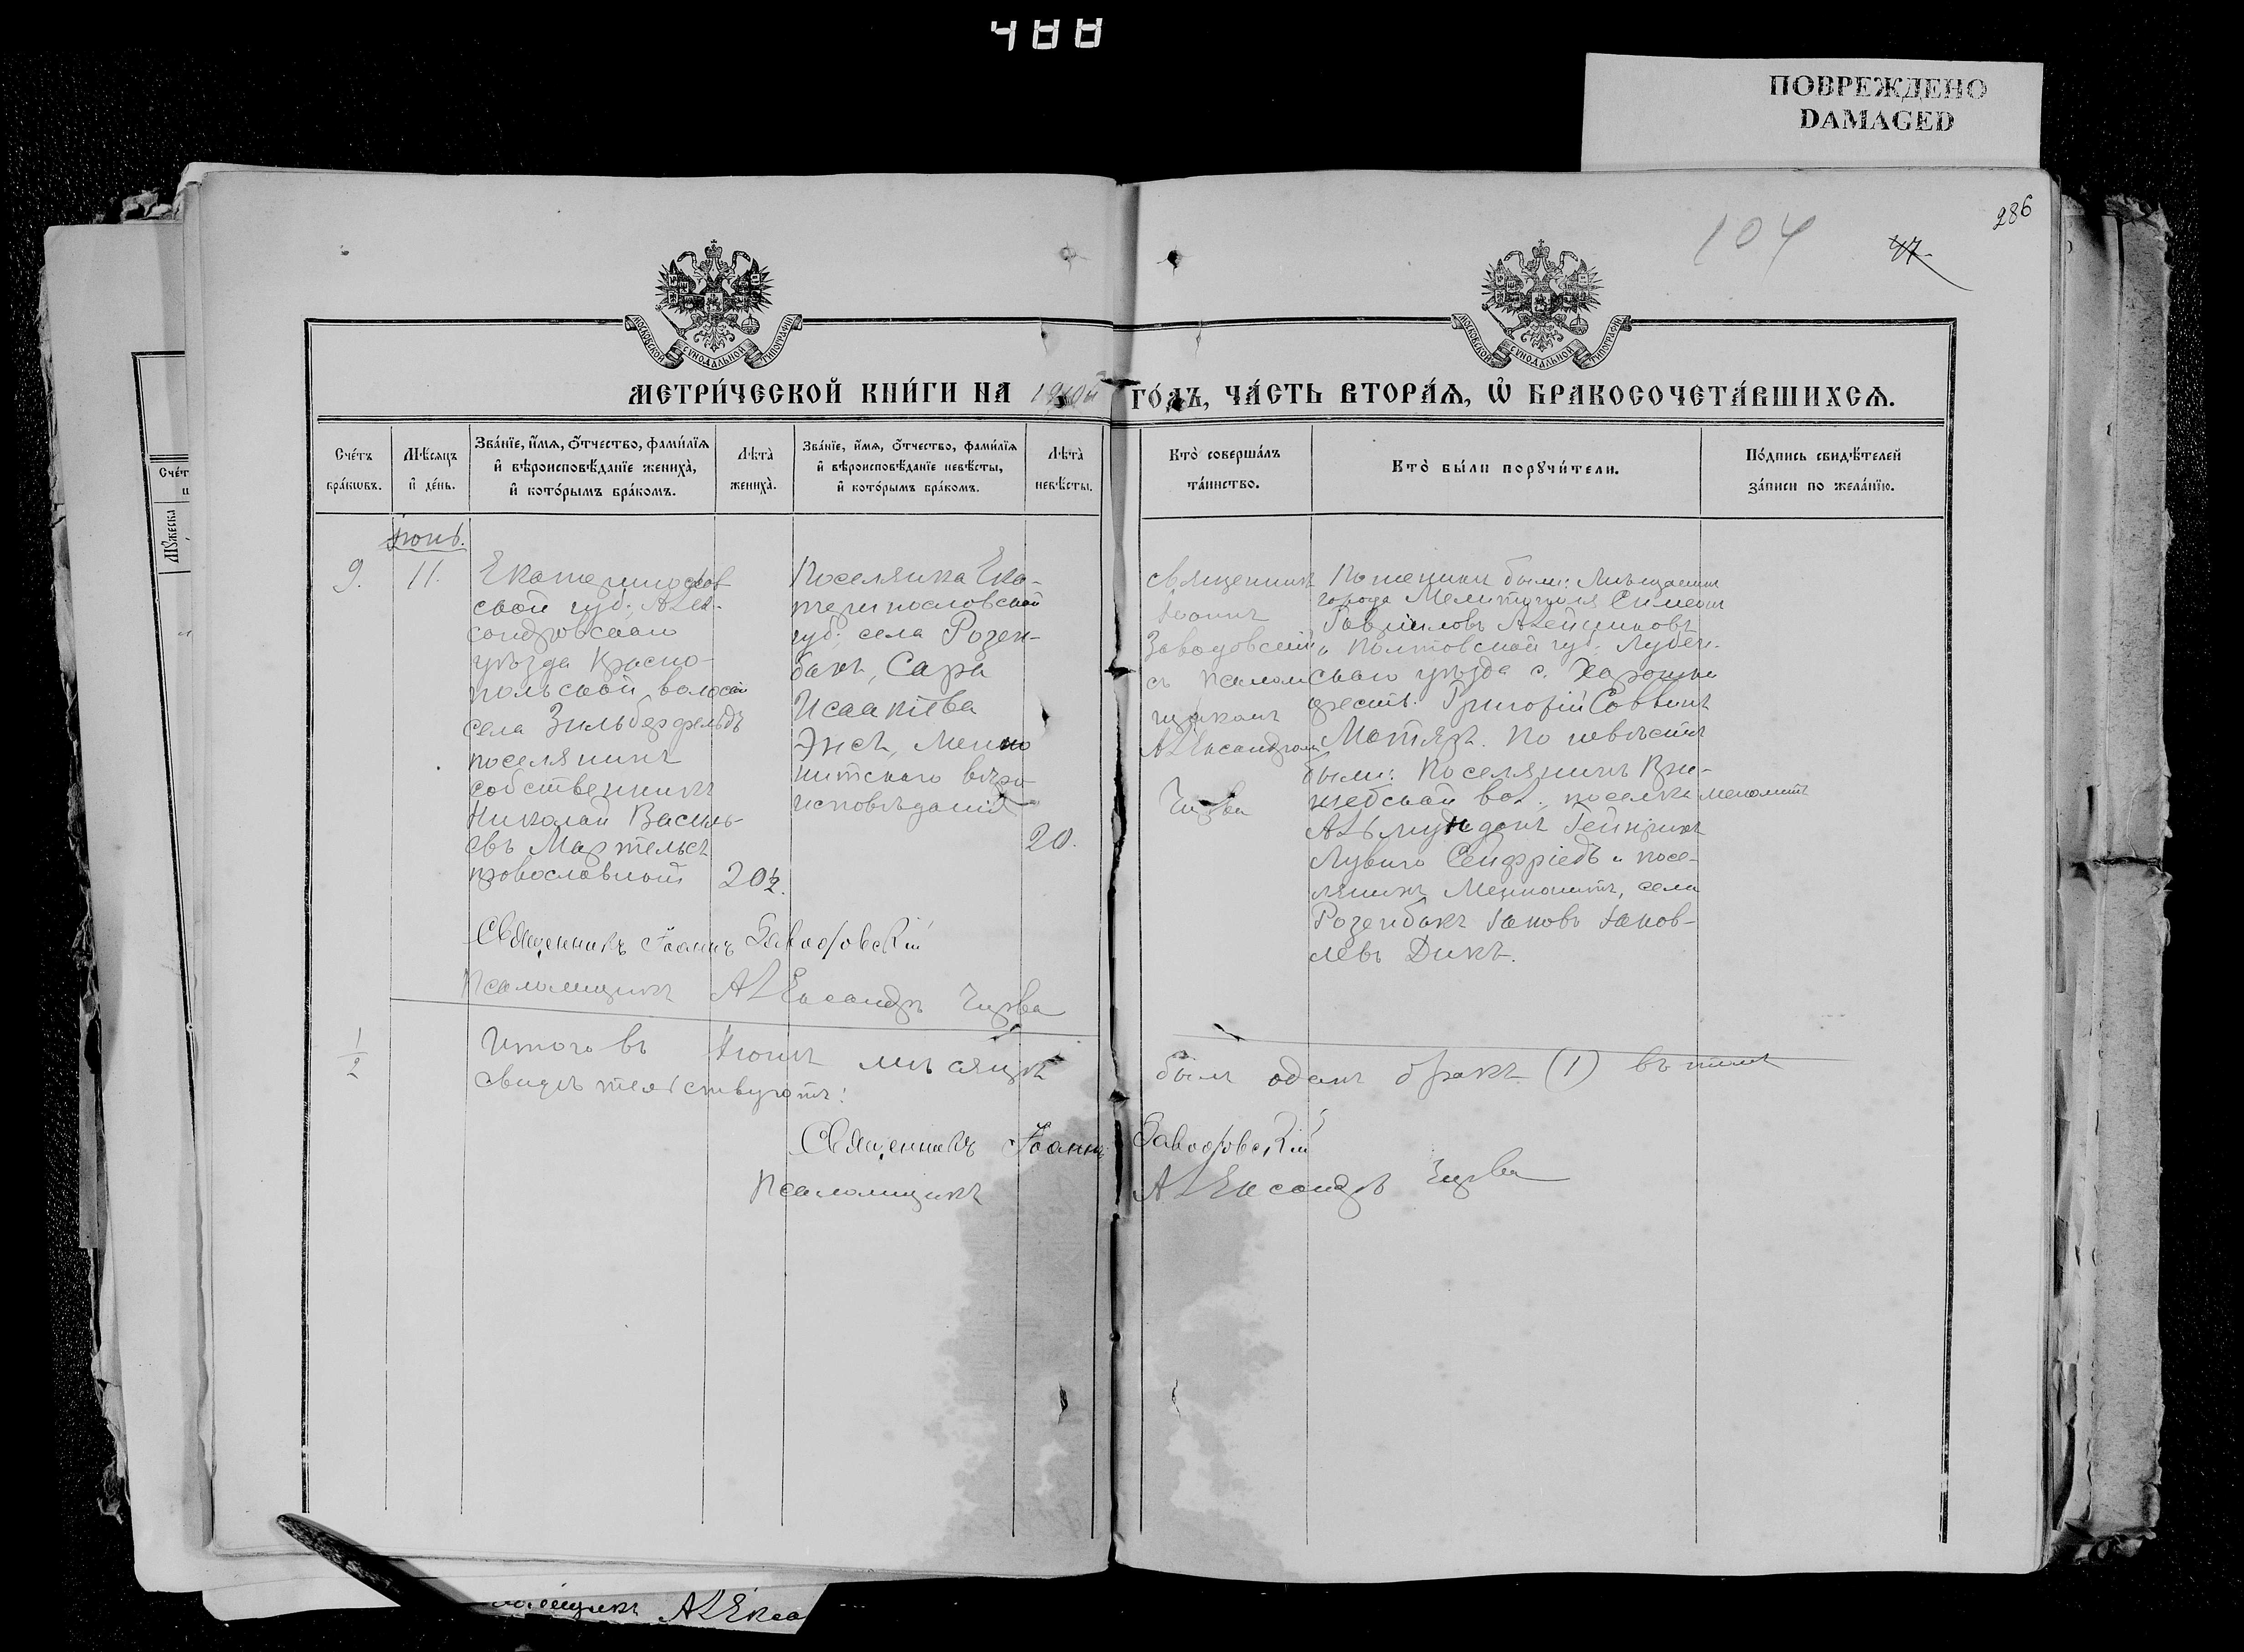 488
ПОВРЕЖДЕНО
DAMAGED
286
104
47.
МОСКОВСКОЙ СУНОДАЛЬНОЙ ТИПОГРАФІИ
МОСКОВСКОЙ СУНОДАЛЬНОЙ ТИПОГРАФІИ
МЕТРИ́ЧЕСКОЙ КНИ́ГИ НА
ГО́ДЪ, ЧА́СТЬ ВТОРА́Ѧ, Ѽ БРАКОСОЧЕТА́ВШИХСѦ.
Сче́тъ бра́кѡвъ.
Мѣ́сяцъ и҆ де́нь.
Зва́нїе, и҆́мѧ, ѻ҆́тчество, фами́лїѧ
и҆ вѣроисповѣ́данїе жениха̀,
и҆ кото́рымъ бра́комъ.
Лѣ́та̀ жениха̀.
Зва́нїе, и҆́мѧ, ѻ҆́тчество, фами́лїѧ
и҆ вѣроисповѣ́данїе невѣ́сты,
и҆ кото́рымъ бра́комъ.
Лѣ́та̀ невѣ́сты.
Кто̀ соверша́лъ та́инство.
Кто̀ бы́ли порꙋчи́тели.
По́дпись свидѣ́телей
за́писи по жела́нїю.
Іюнь.
9.
11.
Екатеринослав
ской губ., Алек-
сандровскаго
уѣзда Красно-
польской волости
села Зильберфельдъ
поселянинъ
собственникъ
Николай Василь-
евъ Мартельсъ
православный
20½.
Поселянка Ека-
теринославской
губ. села Розен-
бахъ, Сара
Исаакіева
Энсъ, Менно
нитскаго вѣро-
исповѣданія
20.
Священникъ
Іоаннъ
Заводовскій
съ псалом
щикомъ
Александромъ
Чирва
По женихѣ были: Мѣщанинъ
города Мелитополя Симеонъ
Гавріиловъ Алейниковъ
и Полтавской губ. Лубен-
скаго уѣзда с.
крест. Григорій Саввинъ
Мотяръ. По невѣстѣ
были: Поселянинъ
вол., поселка
Гейнрихъ
Сейфридъ и посе-
лянинъ Меннонитъ, села
Розенбахъ Іаковъ Іаков-
левъ Дикъ.
Священникъ Іоаннъ Заводовскій
Псаломщикъ Александръ Чирва
1/2
Итого въ Іюнѣ мѣсяцѣ былъ одинъ бракъ (1) въ томъ
свидѣтельствуютъ:
Священникъ Іоаннъ Заводовскій
Псаломщикъ Александръ Чирва
Счет
Мꙋжеска